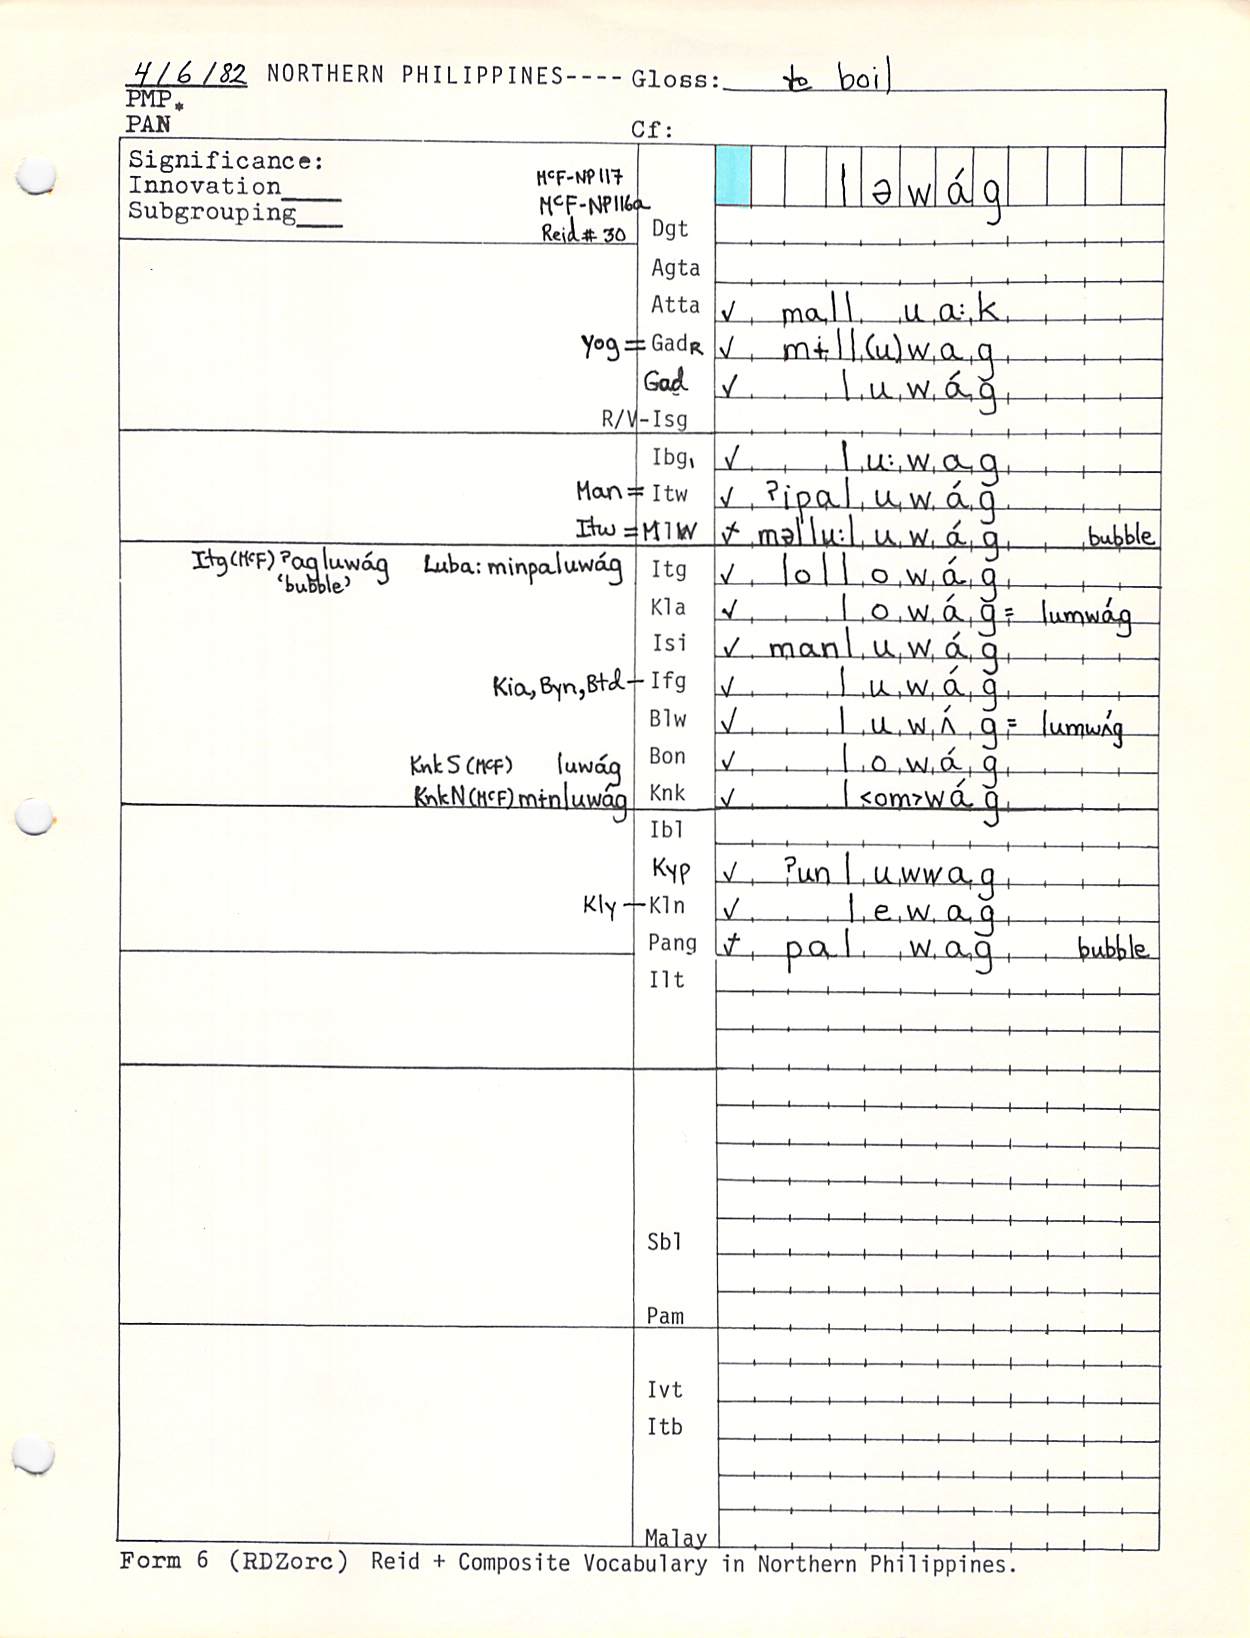 4/6/82 NORTHERN PHILIPPINES---- Gloss: to boil
PMP *
PAN Cf:
Significance:
Innovation____ McF-NP117
McF-NP116a ləwág
Subgrouping____
Reid# 30 Dgt
Agta
Atta ✓ mall ua:k
Yog = GadR ✓ mɨll(u)wag
Gad ✓ luwág
R/V-Isg
Ibg, ✓ lu:wag
Man = Itw ✓ ?ipaluwág
Itw = MlW ✓ məllu:luwág bubble
Itg (McF) ?agluwág Luba: minpaluwág Itg ✓ lollowág
'bubble'
Kla ✓ lowág = lumwág
Isi ✓ manluwág
Kia, Byn, Btd — Ifg ✓ luwág
Blw ✓ luwʌ́g = lumwʌ́g
KnkS (McF) luwág Bon ✓ lowág
KnkN (McF) mɨnluwág Knk ✓ l<om>wág
Ibl
Kyp ✓ ?unluwwag
Kly — Kln ✓ lewag
Pang ✓ palwag bubble
Ilt
Sbl
Pam
Ivt
Itb
Malay
Form 6 (RDZorc) Reid + Composite Vocabulary in Northern Philippines.